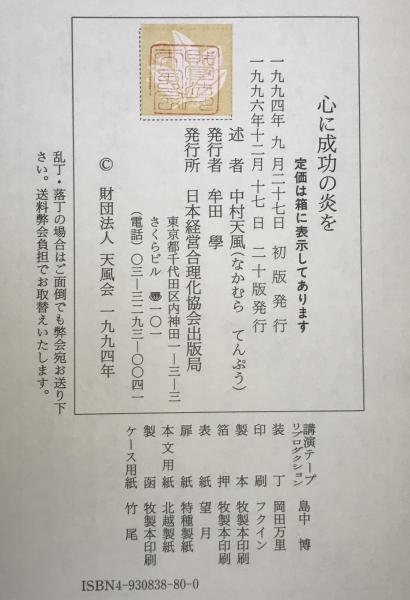 心に成功の炎を
定価は箱に表示してあります
一九九四年 九 月二十七日 初 版 発 行
一九九六年十二月 十七 日 二十版発行
述 者 中村天風(なかむら てんぷう)
発行者 牟田 學
発行所 日本経営合理化協会出版局
東京都千代田区内神田一―三―三
さくらビル 〠一〇一
(電話) 〇三―三二九三―〇〇四一
© 財団法人 天風会 一九九四年
乱丁・落丁の場合はご面倒でも弊会宛お送り下
さい。送料弊会負担でお取替えいたします。
講演テープ
リプロダクション 島中 博
装 丁 岡田万里
印 刷 フクイン
製 本 牧製本印刷
箔 押 牧製本印刷
表 紙 望 月
扉 紙 特種製紙
本文用紙 北越製紙
製 函 牧製本印刷
ケース用紙 竹 尾
ISBN4-930838-80-0